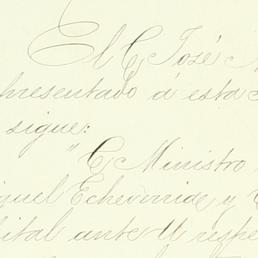 El C. José
presentado á esta
sigue:
"C. Ministro
guel Echeverride y
ital ante U. respe